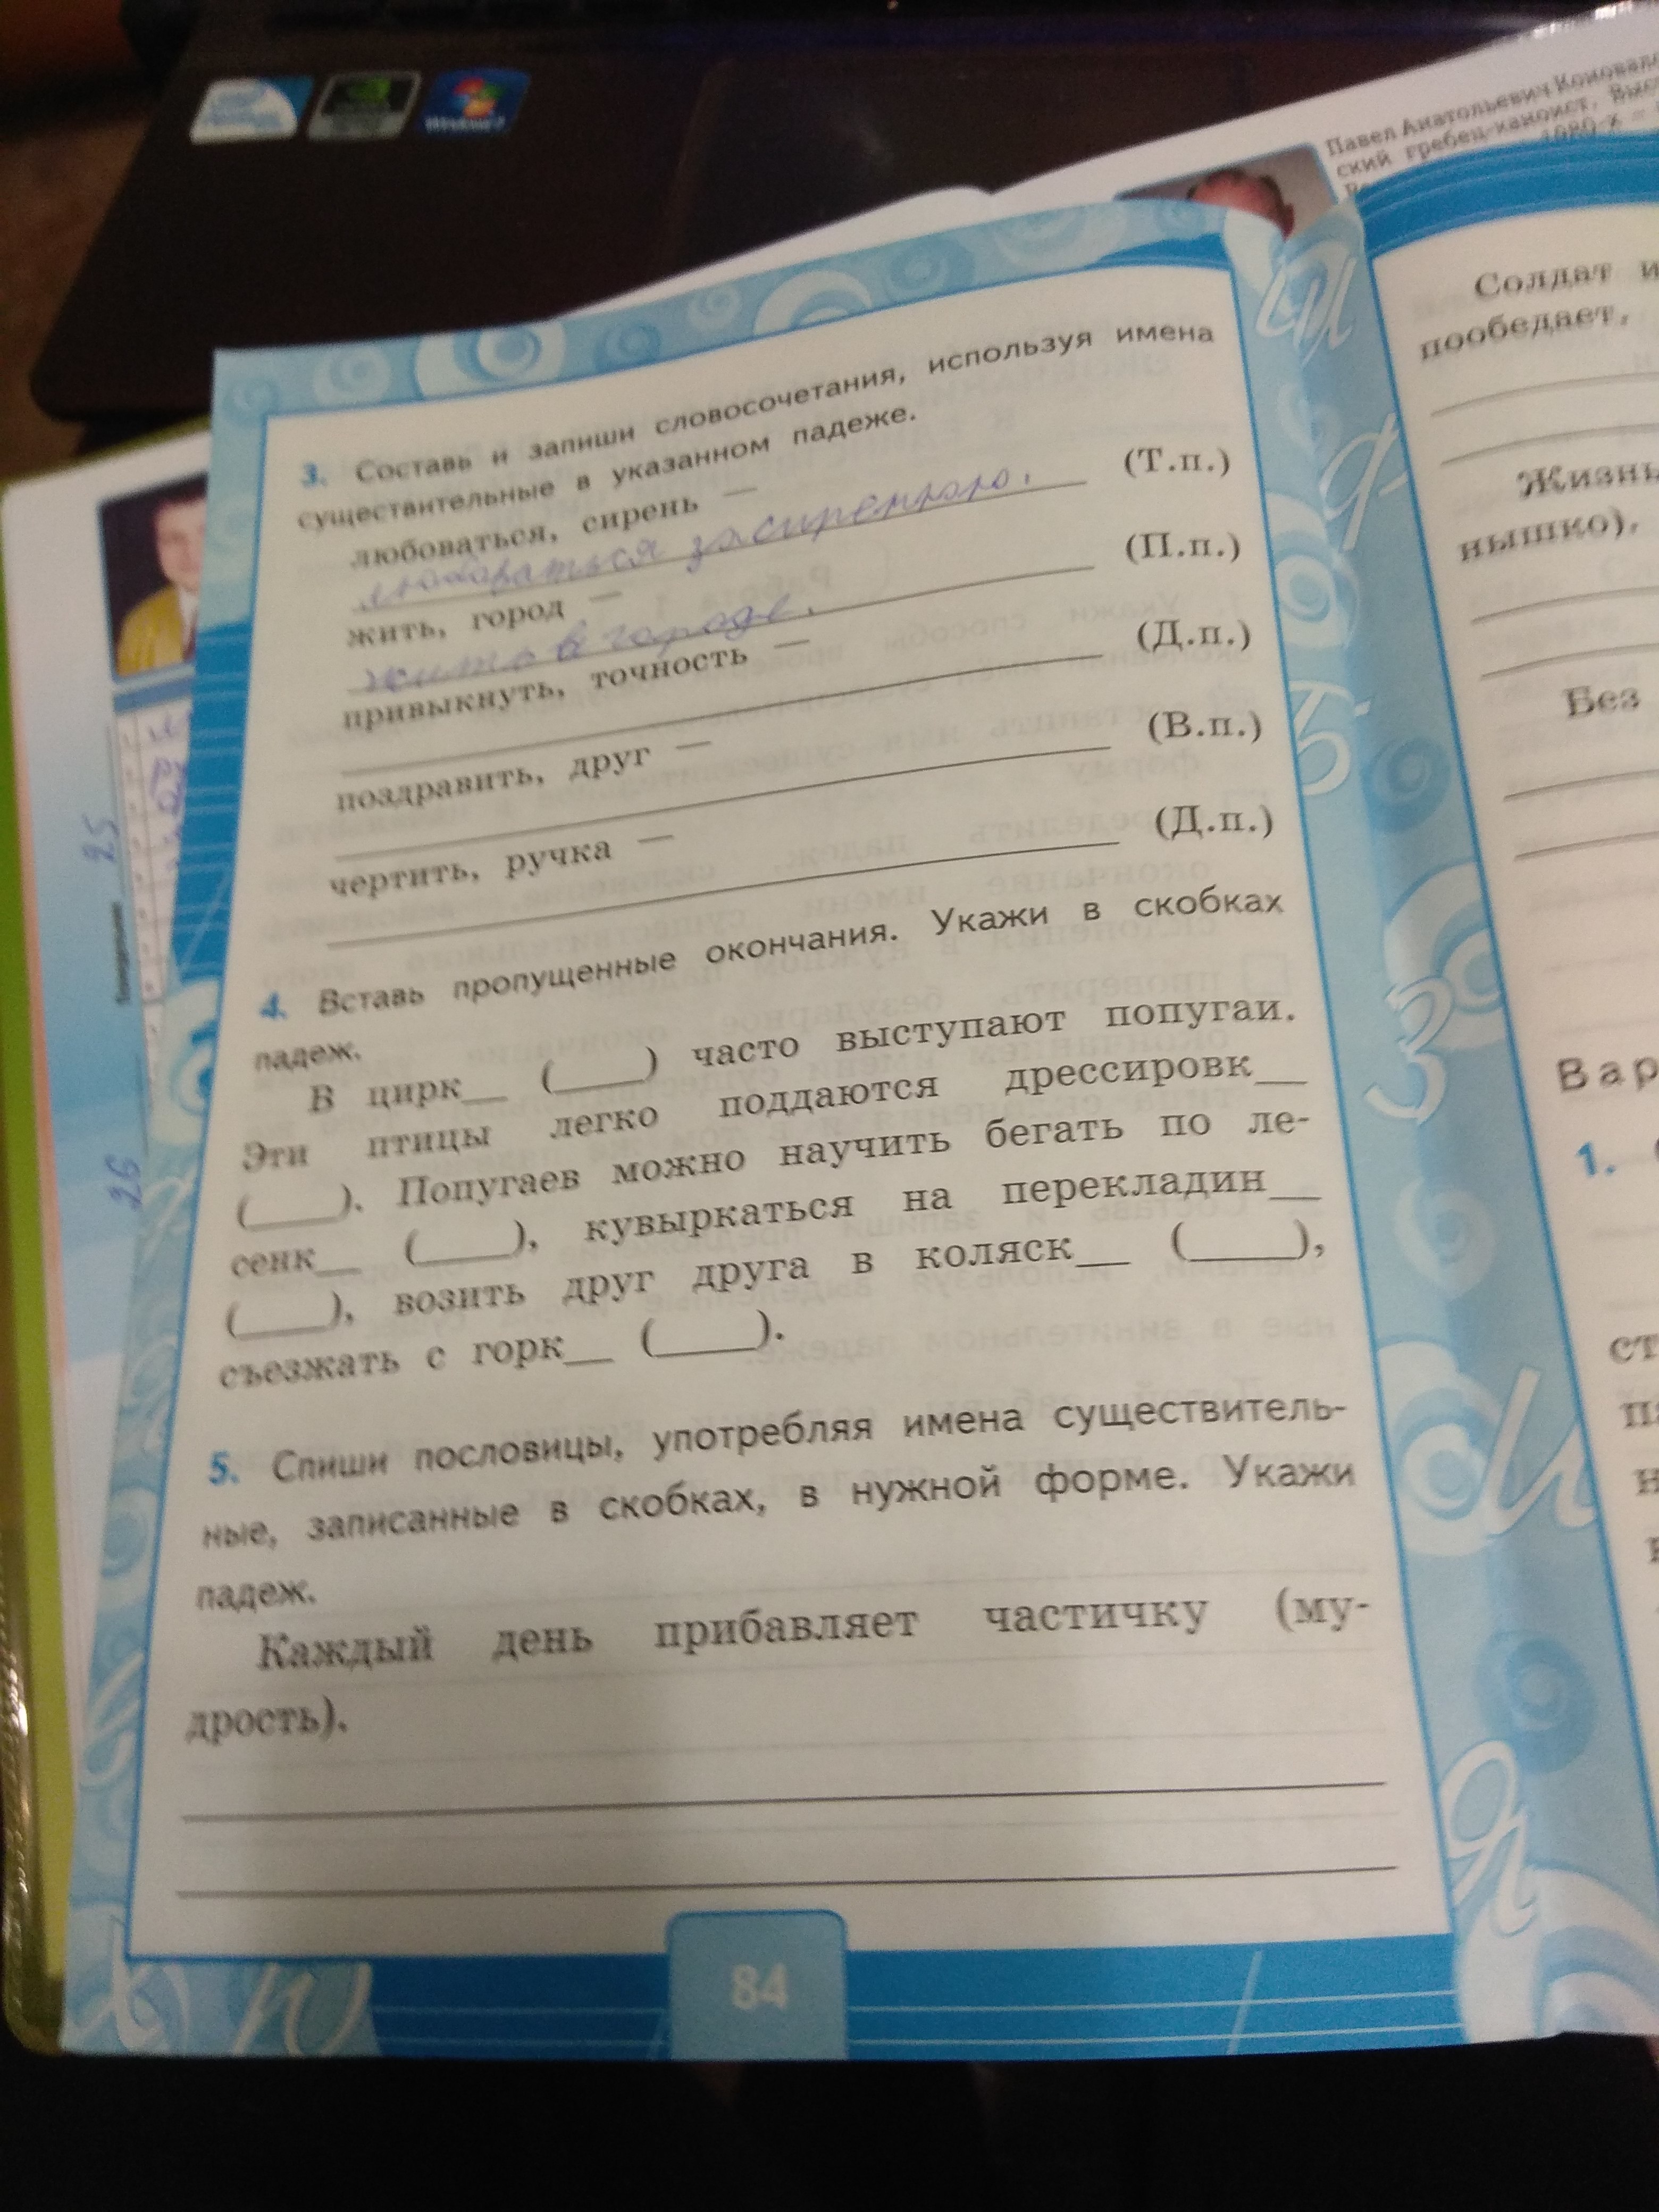 Павел Анатольевич
ский гребец-каноист.
3. Составь и запиши словосочетания, используя имена
существительные в указанном падеже.
любоваться, сирень —
любоваться за сиренью. (Т.п.)
жить, город —
жить в городе. (П.п.)
привыкнуть, точность —
(Д.п.)
поздравить, друг —
(В.п.)
чертить, ручка —
(Д.п.)
4. Вставь пропущенные окончания. Укажи в скобках
падеж.
В цирк__ (____) часто выступают попугаи.
Эти птицы легко поддаются дрессировк__
(____). Попугаев можно научить бегать по ле-
сенк__ (____), кувыркаться на перекладин__
(____), возить друг друга в коляск__ (____),
съезжать с горк__ (____).
5. Спиши пословицы, употребляя имена существитель-
ные, записанные в скобках, в нужной форме. Укажи
падеж.
Каждый день прибавляет частичку (му-
дрость).
84
25
26
Солдат
пообедает,
Жизнь
нышко),
Без
1.